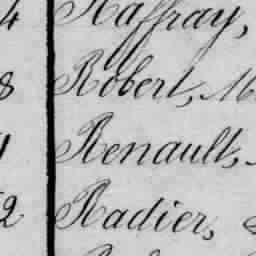 4 Raffray,
8 Robert, M
Renault,
2 Radier,